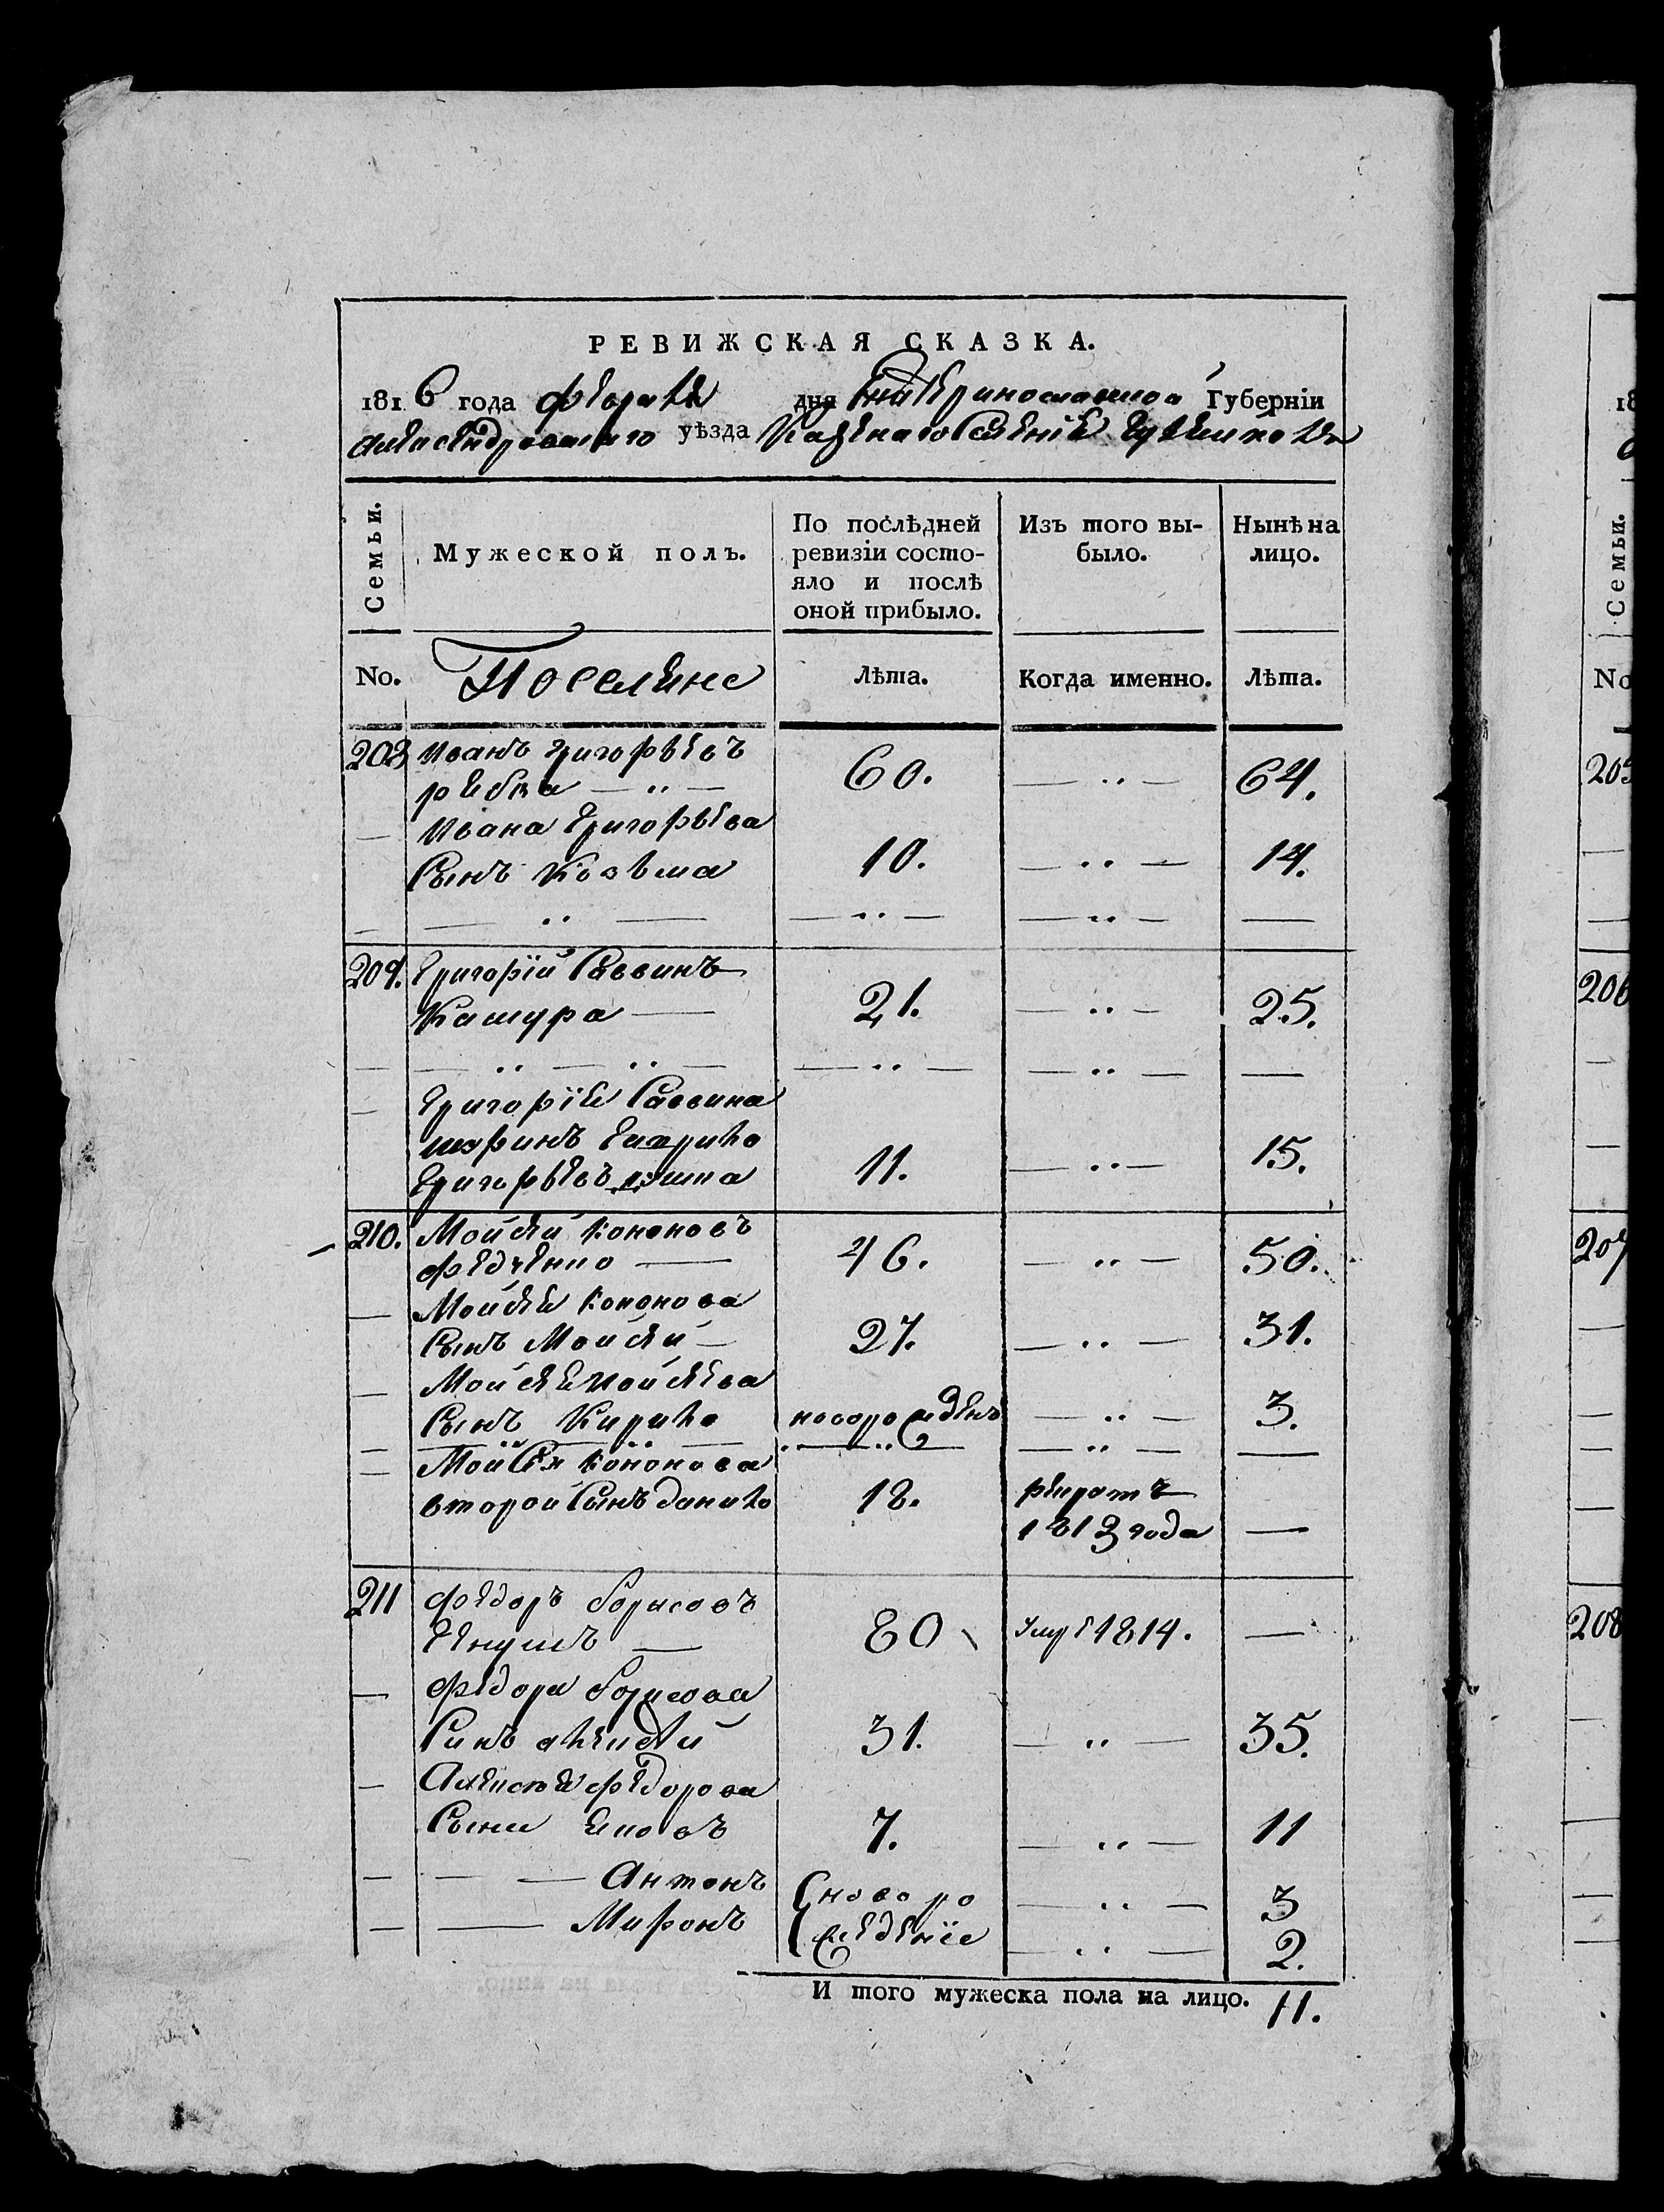 РЕВИЖСКАЯ СКАЗКА.
1816 года февраля дня Екатеринославской Губерніи
Александровскаго уѣзда Казенаго Селенія
Семьи.
Мужеской полъ.
По послѣдней ревизіи состо-
яло и послѣ
оной прибыло.
Изъ того вы-
было.
Нынѣ на
лицо.
No.
Поселяне
Лѣта.
Когда именно.
Лѣта.
203 Иванъ Григорьевъ
60. — „ — 64.
Ивана Григорьева
Сынъ Козьма 10. — „ — 14.
— „ — — „ — — „ — —
209. Григорій Саввинъ
Кашура — 21. — „ — 25.
— „ — „ — — „ — — „ — —
Григорія Саввина
шуринъ Гаврило
Григорьевъ 11. — „ — 15.
210. Мойсей Кононовъ
Федченко — 46. — „ — 50.
Мойсея Кононова
Сынъ Мойсей — 27. — „ — 31.
Мойсея Мойсеева
Сынъ Кирило новорожденъ — „ — 3.
Мойсея Кононова
второй Сынъ данило 18. рекрутъ
1813 года —
211 Федоръ Борисовъ
80 умре 1814. —
Федора Борисова
Синъ алексей 31. — „ — 35.
Алексея Федорова
Сыни 7. — „ — 11
— — Антонъ новоро — „ — 3
— Миронъ жденіе — „ — 2.
И того мужеска пола на лицо. 11.
18
Семьи.
No
205
206
207
208